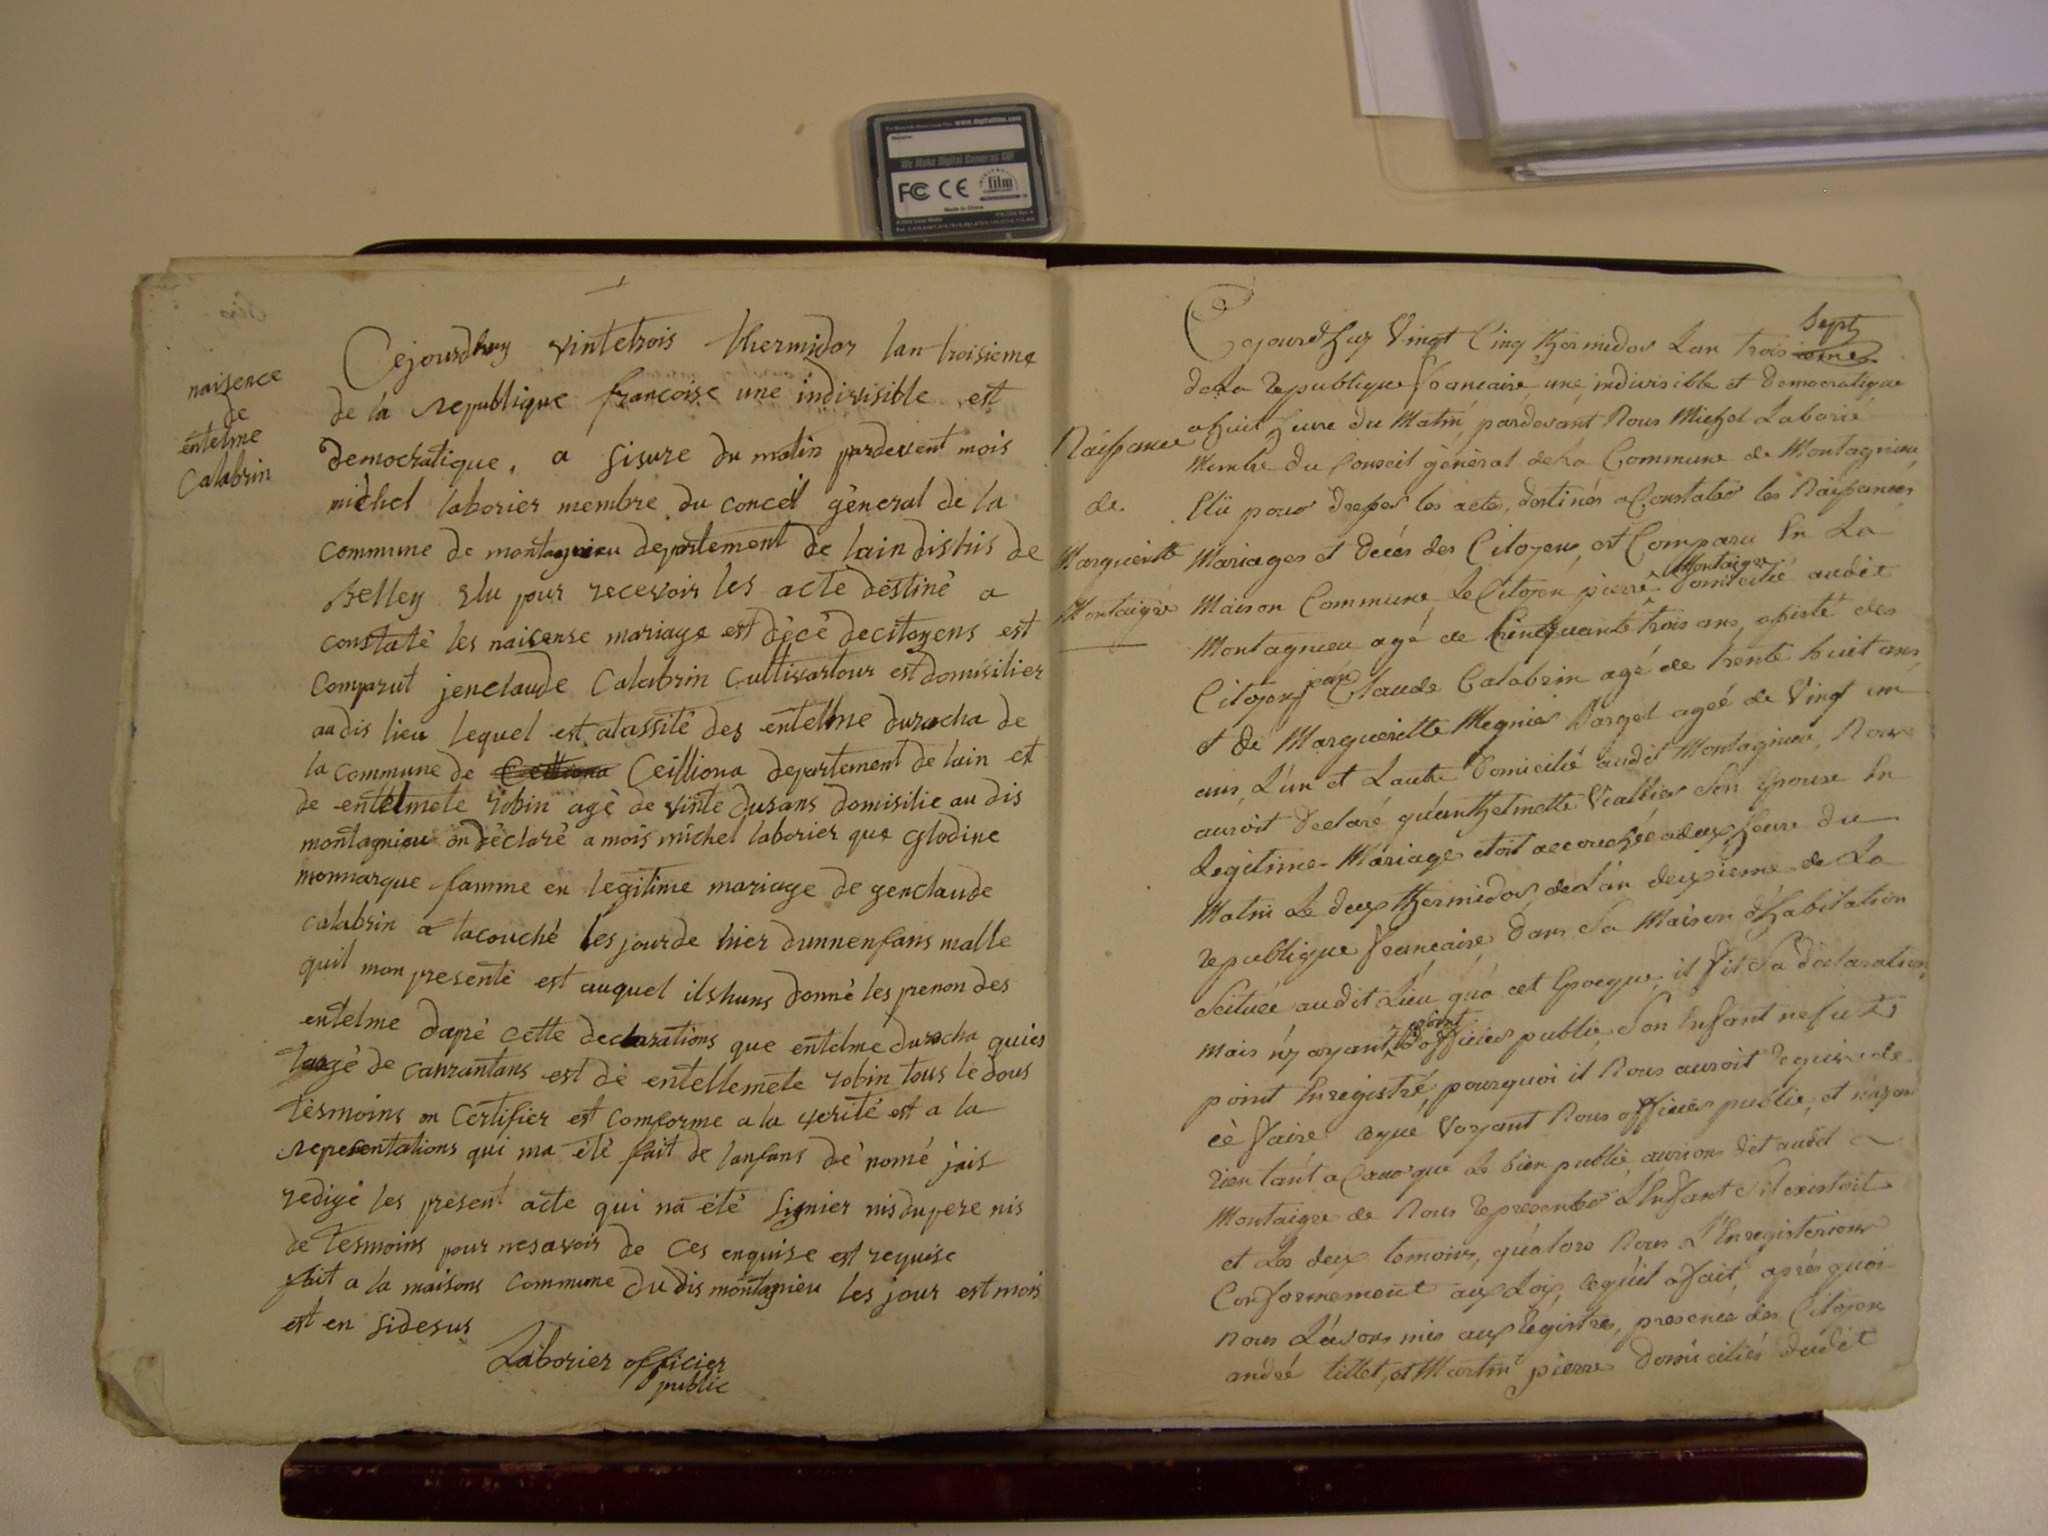 www.digitalfilm.com
We Make Digital Cameras GO!
FC CE film
Made in China
naisence
de
entelme
Calabrin
Cejourdhuy vintetrois thermidor lan troisieme
de la republique francoise une indivisible est
democratique. a sisure du matin pardevent mois
michel laborier membre du concel géneral de la
commune de montagnieu departement de lain distris de
Belley elu pour recevoir les acte destiné a
constaté les naisense mariage est décé decitoyens est
comparut jenclaude Calabrin cultivartour est domisilier
audis lieu lequel est atassité des entelme durocha de
la commune de Ceilliona Ceilliona departement de lain et
de entelmete robin agé de vinte dusans domisilie au dis
montagnieu on déclaré a mois michel laborier que glodine
monnarque famme en legitime mariage de genclaude
calabrin a tacouché les jour de hier dunnenfans malle
quil mon presenté est auquel ilshuns donné les prenon des
entelme dapré cette declarations que entelme durocha quies
tagé de canrantans est dé entellemete robin tous le dous
tesmoins on certifier est comforme a la verité est a la
representations qui ma été fait de lanfans dé nomé jais
redigé les present acte qui na été signier nis du pere nis
de tesmoins pour nesavoir de ces enquise est requise
fait a la maisons commune du dis montagnieu les jour est mois
est en sidesus
Laborier officier
public
Naissance
de
Marguerite
Montaigre
sept
Cejourdhuy Vingt Cinq thermidor Lan trois
de La republique francaise, une, indivisible et democratique
a huit heure du Matin, pardevant Nous Michel Laborié
Membre du Conseil général de La Commune de Montagnieu
Elü pour dresser les actes, destinés a Constater les Naissances
Mariages et decés des Citoyens, est Comparu En La
Montaigre
Maison Commune, Le Citoyen pierre domicilié audit
Montagnieu agé de Cinquante trois ans, assisté des
Citoyens jean Claude Calabrin agé de trente huit ans
et de Marguerite Megnier Darget ageé de Vingt un
ans, L'un et Lautre domicilié audit Montagnieu, Nous
auroit declaré qu'anthelmette Viallier Son Epouse En
Legitime Mariage etoit accouchée a deux heure du
Matin Le deux thermidor de L'an deuxieme de La
republique francaise, dans Sa Maison d'habitation
Scituée audit Lieu, qu'a cet Epoque, il fit Sa declaration,
mais n'y ayant officier public, Son Enfant ne fut
point Enregistré, pourquoi il Nous auroit requis de
cè faire ceque Voyant Nous officier public, et n'ayant
rien tant a Coeur que Le bien public aurions dit audit
Montaigre de Nous representer L'Enfant S'il existoit
et Les deux temoins, qu'alors Nous L'Enregisterions
Conformement aux Loix, cequ'il a fait, après quoi
Nous L'avons mis aux régistres, presence des Citoyens
andré tillet, et Martin pierre domiciliés dudit